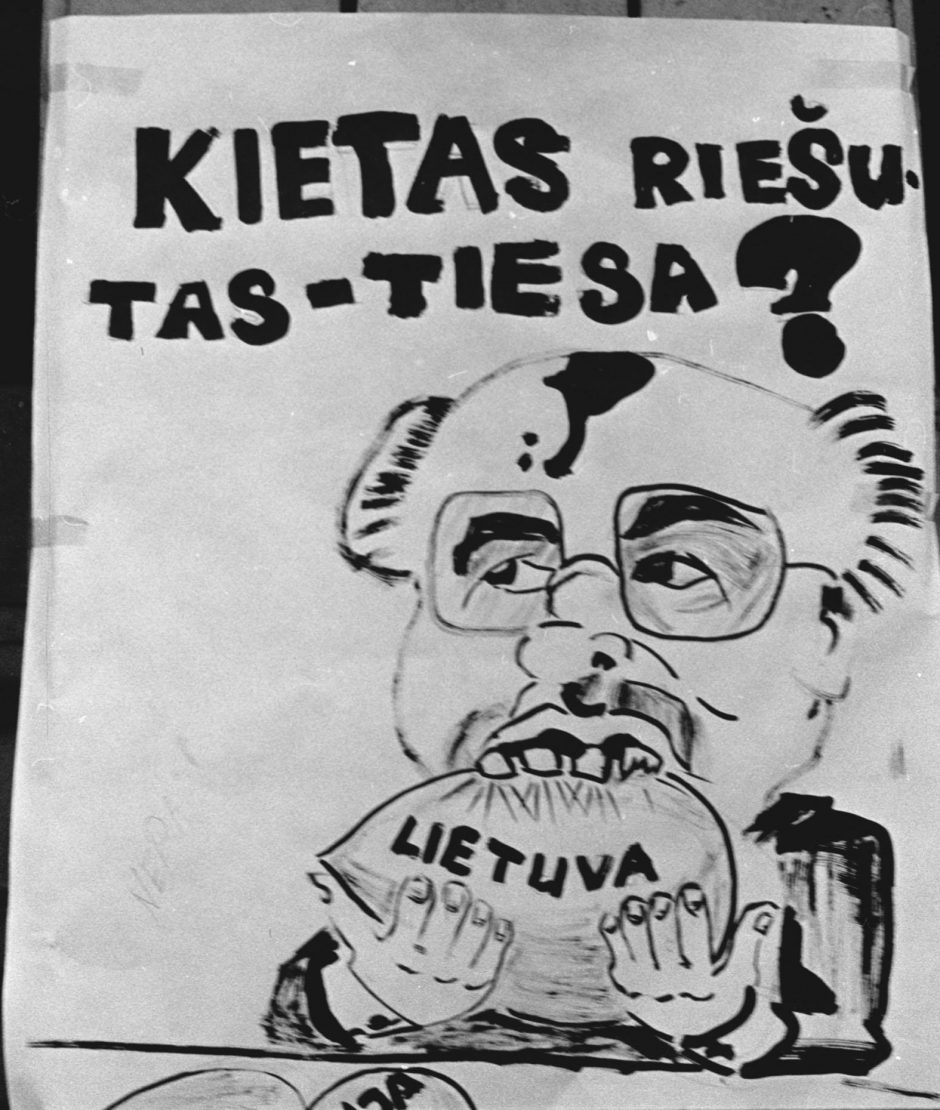 KIETAS RIEŠU-
TAS-TIESA?
LIETUVA